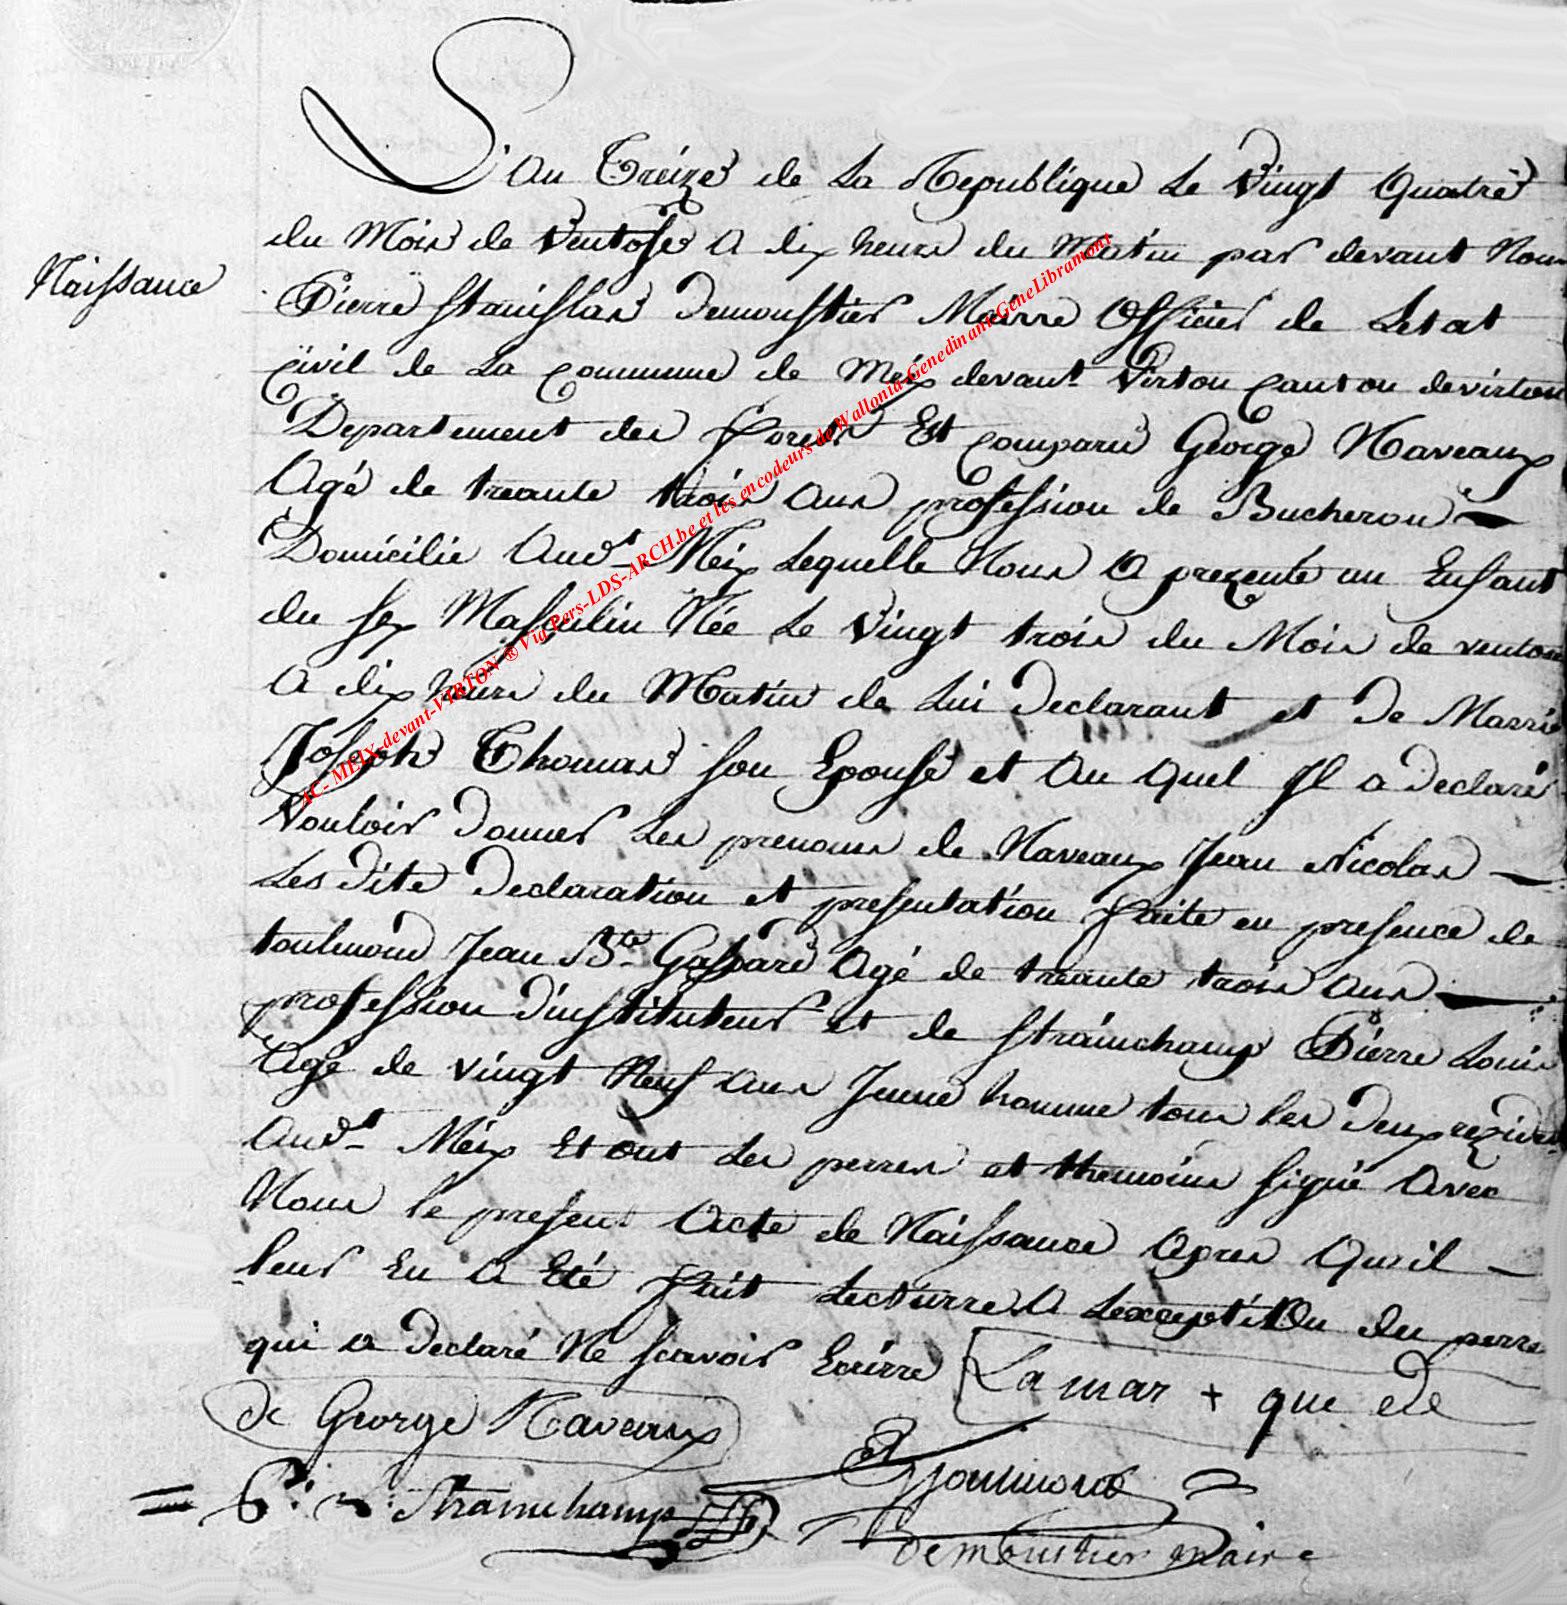 L'an Treize de La Republique Le Vingt Quatre
du Mois de Ventose a dix heures du Matin par devant Nous
Naissance
Pierre Stanislas Demoustier Maire Officier de Letat
civil de La Commune de Meix devant Virton Canton de virton
Departement des forets Est comparu George Naveaux
Agé de treante trois ans profession de Bucheron
Domicilie Aud.t Meix Lequelle Nous a prezente un Enfant
du sex Masculin Née Le Vingt trois du Mois de ventose
a dix heures du Matin de Lui Declarant et De Marrie
Joseph Thomas son Epouse et Au Quel Il a Declaré
Vouloir Donner Les prenoms de Naveaux Jean Nicolas
Les Dite Declaration et presentation faite en presence de
toulmond Jean B.te Gaspard Agé de treante trois ans
profession D'instituteur et de Strainchamp Pierre Louis
Agé de vingt Neuf ans Jeune homme tous les Deux rezident
Aud.t Meix Et ont Les perres et themoins signé Avec
Nous le present Acte de Naissance Apres Qu'il
leur En A Eté fait Lecturre A Lexception du perre
qui a Declaré Ne scavoir Ecrirre La mar + que de
de George Naveaux
Toulmond
P: L: Strainchamps
Demoustier maire
IC- MEIX-devant-VIRTON ® Via Pers-LDS-ARCH.be et les encodeurs de Wallonia-Genedinant-GeneLibramont